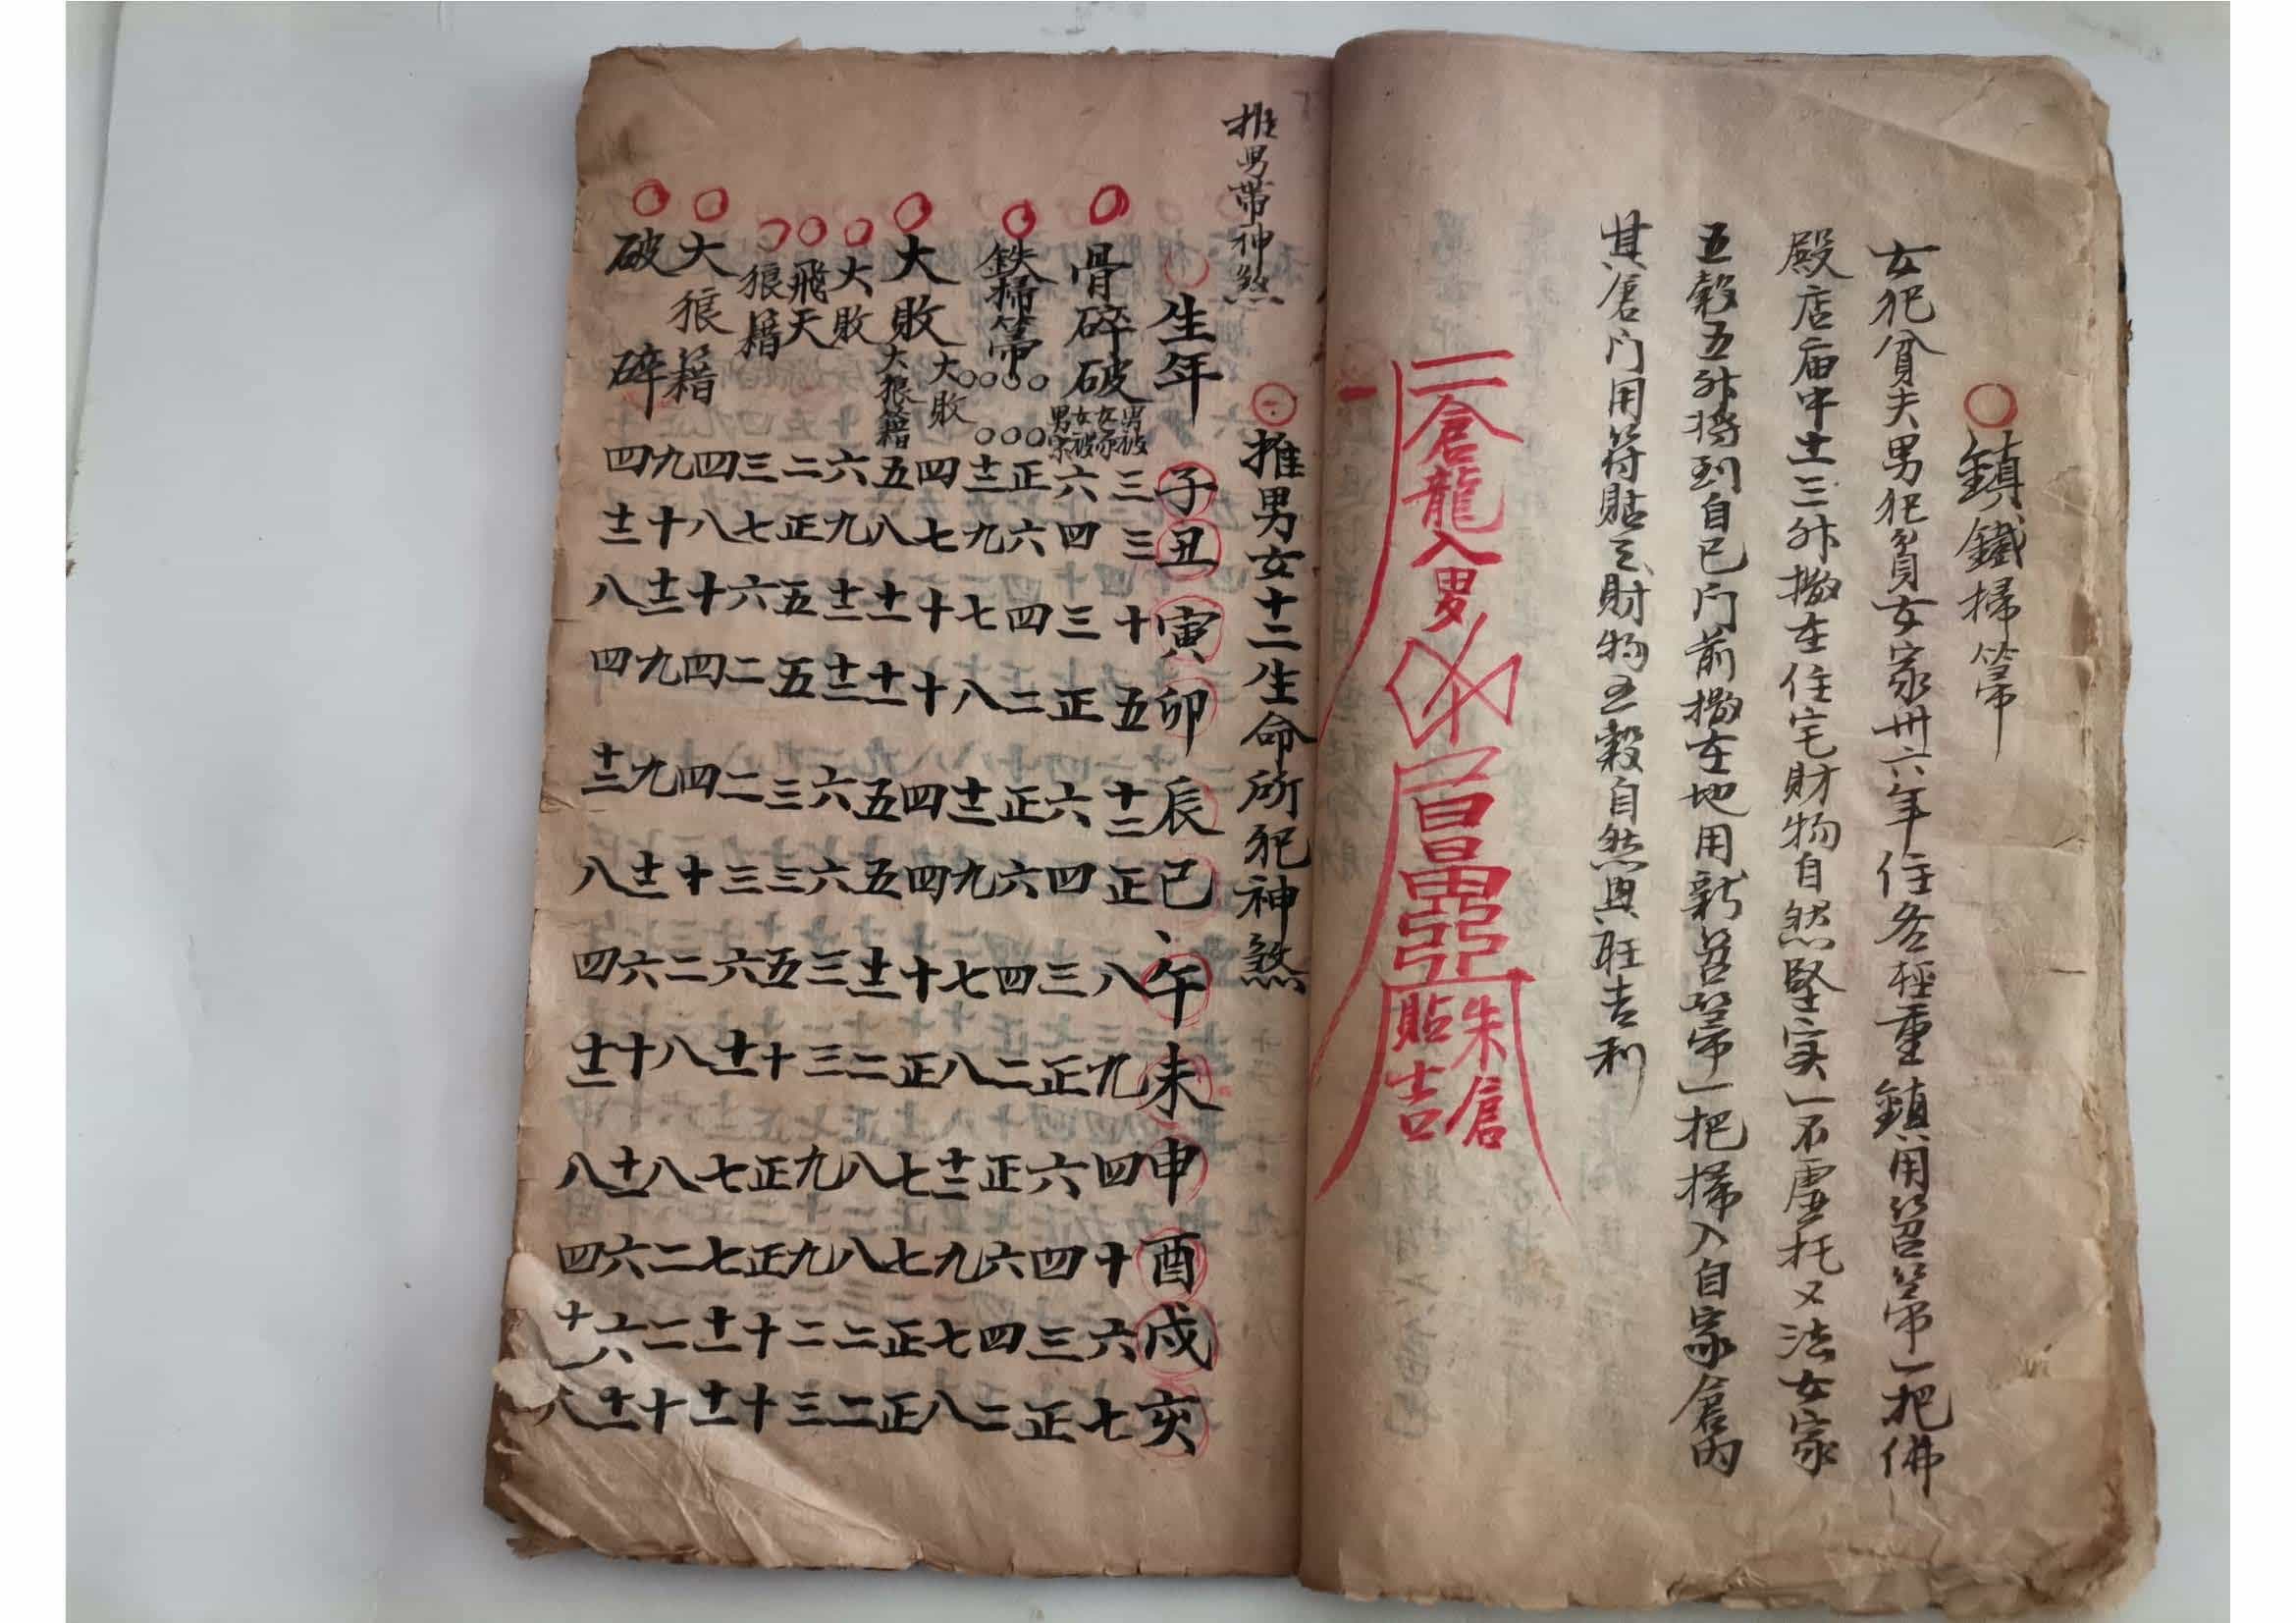 鎮鐵掃箒
女犯貧夫男犯貧女家卅六年住各輕重鎮用笤箒一把佛
殿店庙中土三升撒在住宅財物自然堅实一不虚托又法女家
五穀五升將到自己门前撒在地用新笤箒一把掃入自家倉内
其倉门用符貼之財物五穀自然興旺吉利
二倉龍入
朱倉
貼吉
推男帶神煞
推男女十二生命所犯神煞
生年 子 丑 寅 卯 辰 巳 午 未 申 酉 戌 亥
骨碎破 男破 女家 三 三 十 五 十二 正 八 九 四 十 六 七
女破 男家 六 四 三 正 六 四 三 正 六 四 三 正
鉄掃箒 正 六 四 二 正 六 四 二 正 六 四 二
十二 九 七 八 十二 九 七 八 十二 九 七 八
大敗 大敗 四 七 十 十 四 四 十 正 七 七 正 正
大狼籍 五 八 十一 十一 五 五 十二 二 八 八 二 二
大敗 六 九 十二 十二 六 六 三 三 九 九 二 三
飛天 二 正 五 五 三 三 五 十 正 正 十 十
狼籍 三 七 六 二 二 三 六 十一 七 七 十一 十一
大狼籍 四 八 十 四 四 十 二 八 八 二 二 十
九 十 十二 九 九 十二 六 十 十一 六 六 十一
破碎 四 十二 八 四 十二 八 四 十二 八 四 十二 八